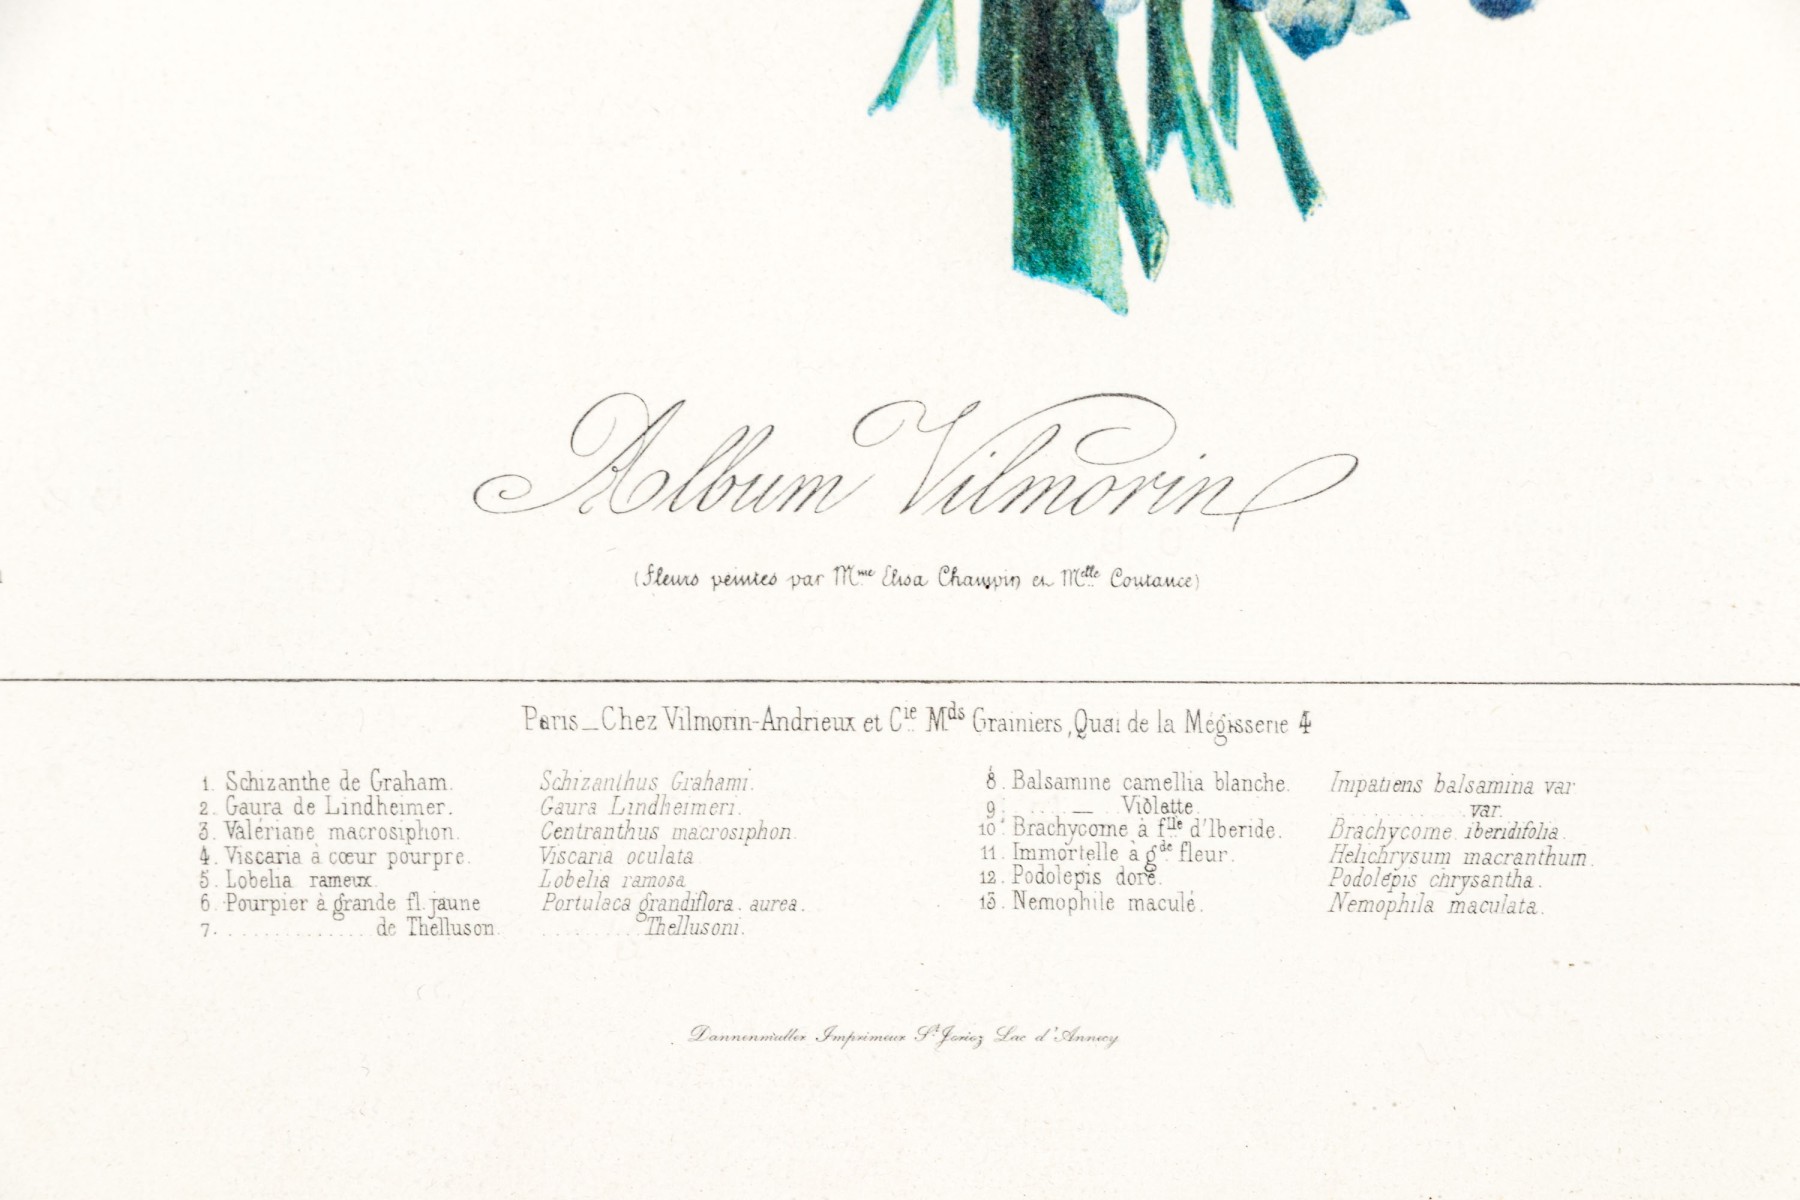 Album Vilmorin
(Fleurs peintes par Mme Elisa Champin et Melle Coutance)
Paris _ Chez Vilmorin-Andrieux et Cie Mds Grainiers, Quai de la Mégisserie 4
1. Schizanthe de Graham. Schizanthus Grahami.
2. Gaura de Lindheimer. Gaura Lindheimeri.
3. Valériane macrosiphon. Centranthus macrosiphon.
4. Viscaria à cœur pourpre. Viscaria oculata
5. Lobelia rameux. Lobelia ramosa
6. Pourpier à grande fl. jaune Portulaca grandiflora. aurea.
7. .............. de Thelluson. ......... Thellusoni.
8. Balsamine camellia blanche. Impatiens balsamina var
9. ..... — Violatte. ........... var.
10. Brachycome à flle d'Iberide. Brachycome iberidifolia.
11. Immortelle à gde fleur. Helichrysum macranthum.
12. Podolepis doré. Podolepis chrysantha.
13. Nemophile maculé. Nemophila maculata.
Dannenmuller Imprimeur St Jorioz Lac d'Annecy